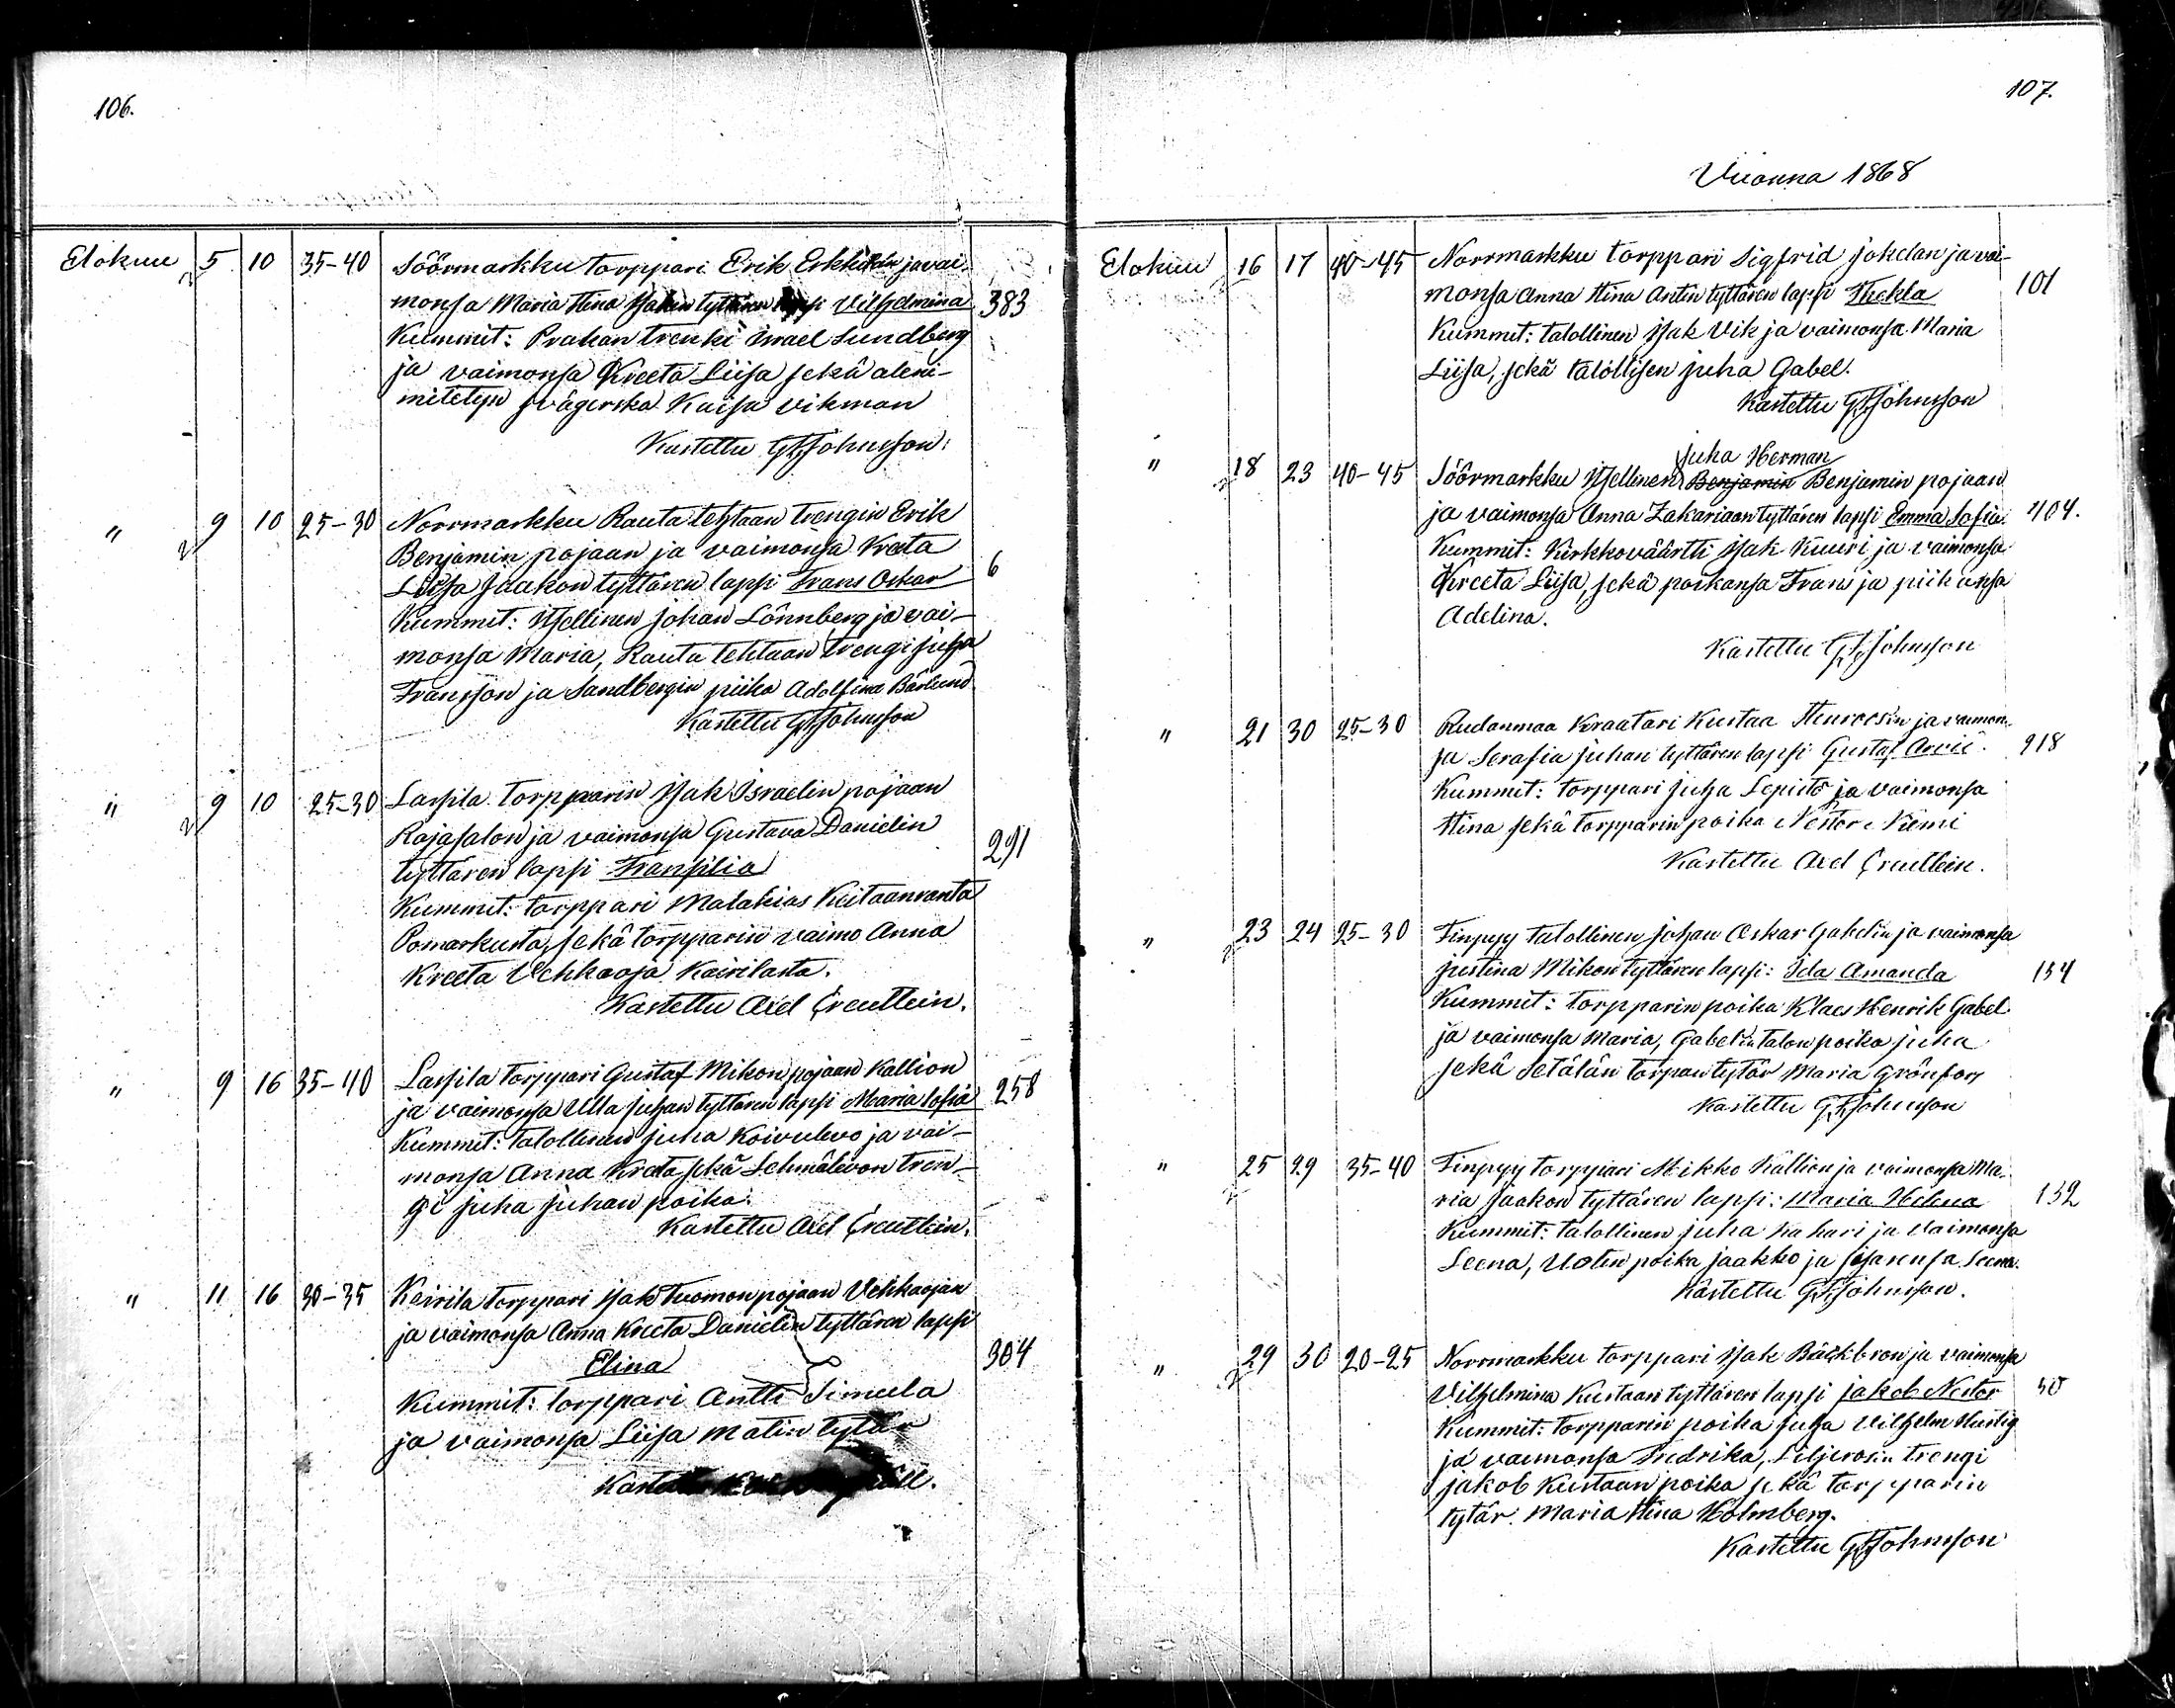 106.
Elokuu 5 10 35-40 Söörmarkku torppari Erik Erkkilän ja vai-
monsa Maria Stina Isakin tyttären lapsi Vilhelmina 383
Kummit: Prakan trenki Israel Sundberg
ja vaimonsa Kreeta Liisa sekä
Kaisa Vikman
Kastettu GFJohnsson.
" 9 10 25-30 Norrmarkku Rauta tehtaan trengin Erik
Benjamin pojaan ja vaimonsa Kreeta
Liisa Jaakon tyttären lapsi Frans Oskar 6
Kummit: Itsellinen Johan Lönnberg ja vai-
monsa Maria, Rauta tehtaan trengi Juha
Fransson ja Sandbergin piika Adolfina Bärlund
Kastettu GFJohnsson
" 9 10 25-30 Lassila torpparin Isak Israelin pojaan
Rajasalon ja vaimonsa Gustava Danielin 291
tyttären lapsi Fransilia
Kummit: torppari Malakias Keitaanranta
Pomarkusta, sekä torpparin vaimo Anna
Kreeta Vehkaoja Kairilasta.
Kastettu Axel Creutlein.
" 9 16 35-40 Lassila torppari Gustaf Mikon pojaan Kallion
ja vaimonsa Ulla Juhan tyttären lapsi Maria Sofia 258
Kummit: talollinen Juha Koivulevo ja vai-
monsa Anna Kreta sekä Lehmälevon tren-
gi Juha Juhan poika.
Kastettu Axel Creutlein.
" 11 16 30-35 Kairila torppari Isak Tuomon pojaan Vehkaojan
ja vaimonsa Anna Kreeta Danielin tyttären lapsi
Elina 304
Kummit: torppari Antti Simula
ja vaimonsa Liisa Matin tytär
107.
Vuonna 1868
Elokuu 16 17 40-45 Norrmarkku torppari Sigfrid Jokelan ja vai-
monsa Anna Stina Antin tyttären lapsi Thekla 101
Kummit: talollinen Isak Vik ja vaimonsa Maria
Liisa, sekä talollisen Juha Gabel.
Kastettu GFJohnsson
Juha Herman
" 18 23 40-45 Söörmarkku Itsellinen Benjamin Benjamin pojaan
ja vaimonsa Anna Zakariaan tyttären lapsi Emma Sofia. 404.
Kummit: Kirkkoväärtti Isak Kuuri ja vaimonsa
Kreeta Liisa, sekä poikansa Frans ja piikansa
Adelina.
Kastettu GFJohnsson
" 21 30 25-30 Rudanmaa Kraatari Kustaa Henrocsin ja vaimon-
sa Serafia Juhan tyttären lapsi Gustaf Arvii. 918
Kummit: torppari Juha Lepistö ja vaimonsa
Stina sekä torpparin poika Nestor Niemi
Kastettu Axel Creutlein.
" 23 24 25-30 Finpyy talollinen Johan Oskar Gabelin ja vaimonsa
Justina Mikon tyttären lapsi: Ida Amanda 154
Kummit: torpparin poika Klaes Henrik Gabel
ja vaimonsa Maria, Gabelin talon poika Juha
sekä Setälän torpan tytär Maria Grönfors
Kastettu GFJohnsson
" 25 29 35-40 Finpyy torppari Mikko Kallion ja vaimonsa Ma-
ria Jaakon tyttären lapsi: Maria Helena 152
Kummit: talollinen Juha Kahari ja vaimonsa
Leena, Uotin poika Jaakko ja sisarensa Leena.
Kastettu GFJohnsson.
" 29 30 20-25 Norrmarkku torppari Isak Bäckbron ja vaimonsa
Vilhelmina Kustaan tyttären lapsi Jakob Nestor 50
Kummit: torpparin poika Juha Vilhelm
ja vaimonsa Fredrika, Liljerosin trengi
Jakob Kustaan poika sekä torpparin
tytär Maria Stina Holmberg.
Kastettu GFJohnsson